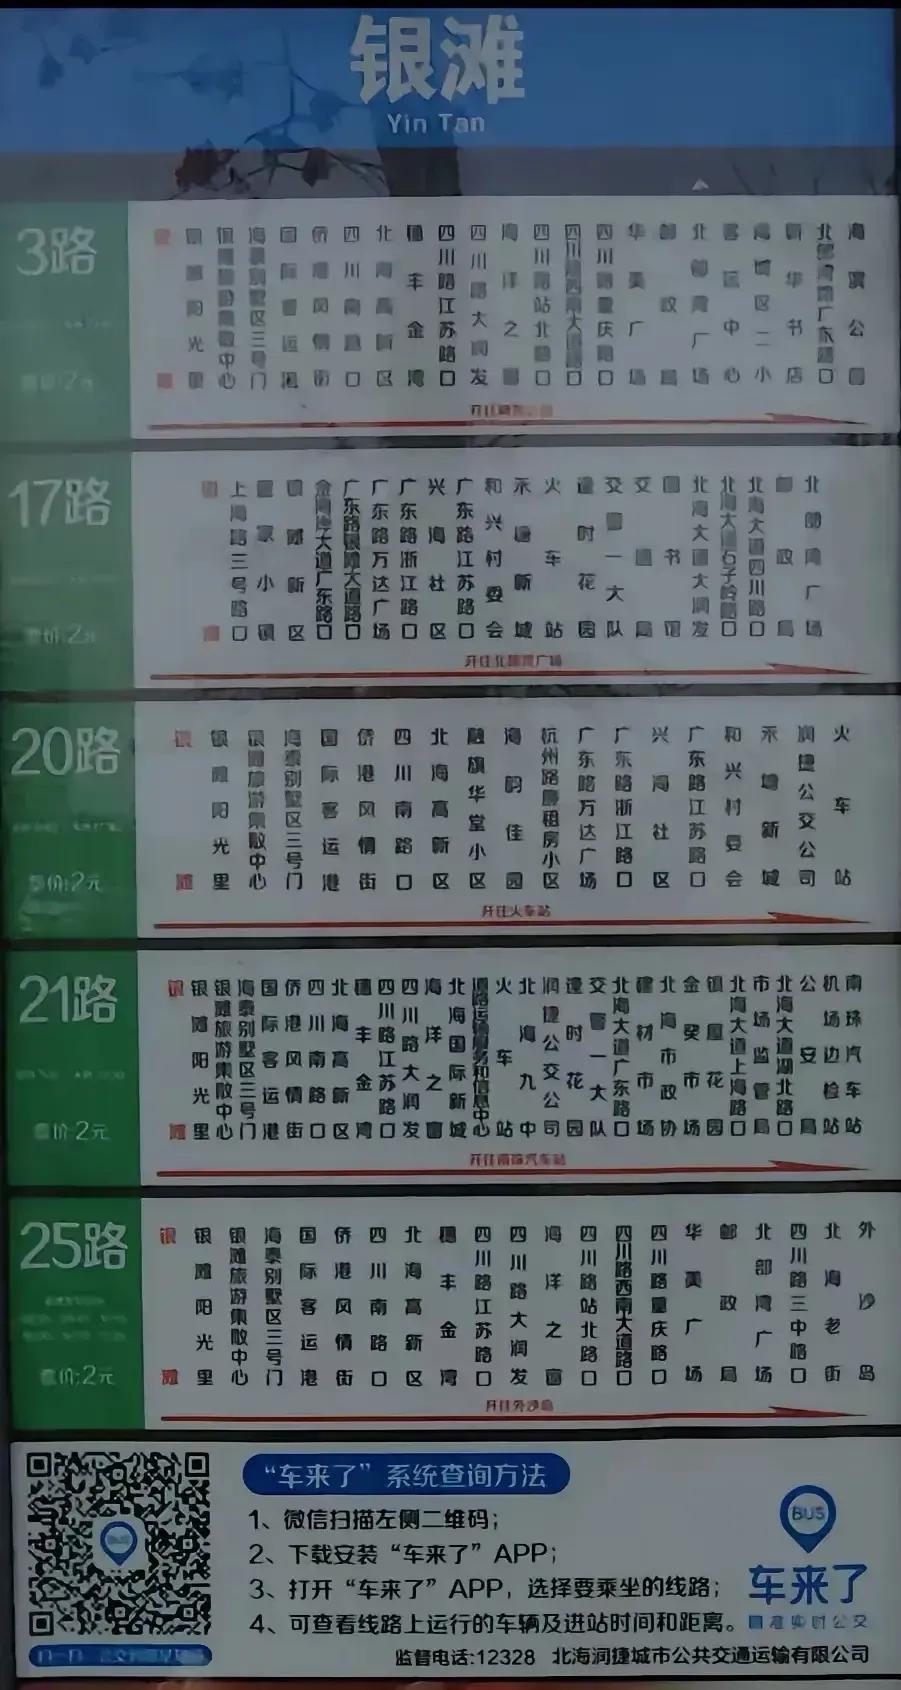 银滩
Yin Tan
3路
票价:2元
银滩
银滩阳光里
银滩旅游集散中心
海泰别墅区三号门
国际客运港
侨港风情街
四川南路口
北海高新区
穗丰金湾
四川路江苏路口
四川路大润发
海洋之窗
四川路站北路口
四川路西南大道路口
四川路重庆路口
华美广场
邮政局
北部湾广场
客运中心
海城区二小
新华书店
北部湾路广东路口
海滨公园
17路
票价:2元
银滩
上海路三号路口
曾家小镇
银滩新区
金海岸大道广东路口
广东路银滩大道路口
广东路万达广场
广东路浙江路口
兴海社区
广东路江苏路口
和兴村委会
禾塘新城
火车站
逢时花园
交警一大队
交通局
图书馆
北海大道大润发
北海大道石子岭路口
北海大道四川路口
邮政局
北部湾广场
开往北部湾广场
20路
票价:2元
银滩
银滩阳光里
银滩旅游集散中心
海泰别墅区三号门
国际客运港
侨港风情街
四川南路口
北海高新区
融旗华堂小区
海韵佳园
杭州路廉租房小区
广东路万达广场
广东路浙江路口
兴海社区
广东路江苏路口
和兴村委会
禾塘新城
润捷公交公司
火车站
开往火车站
21路
票价:2元
银滩
银滩阳光里
银滩旅游集散中心
海泰别墅区三号门
国际客运港
侨港风情街
四川南路口
北海高新区
穗丰金湾
四川路江苏路口
四川路大润发
海洋之窗
北海国际新城
道路运输服务和信息中心
火车站
北海九中
润捷公交公司
逢时花园
交警一大队
北海大道广东路口
建材市场
北海市政协
金葵市场
银屋花园
北海大道上海路口
市场监管局
北海大道湖北路口
公安局
机场边检站
南珠汽车站
开往南珠汽车站
25路
票价:2元
银滩
银滩阳光里
银滩旅游集散中心
海泰别墅区三号门
国际客运港
侨港风情街
四川南路口
北海高新区
穗丰金湾
四川路江苏路口
四川路大润发
海洋之窗
四川路站北路口
四川路西南大道路口
四川路重庆路口
华美广场
邮政局
北部湾广场
四川路三中路口
北海老街
外沙岛
开往外沙岛
“车来了”系统查询方法
1、微信扫描左侧二维码；
2、下载安装“车来了”APP；
3、打开“车来了”APP，选择要乘坐的线路；
4、可查看线路上运行的车辆及进站时间和距离。
BUS
车来了
监督电话:12328 北海润捷城市公共交通运输有限公司